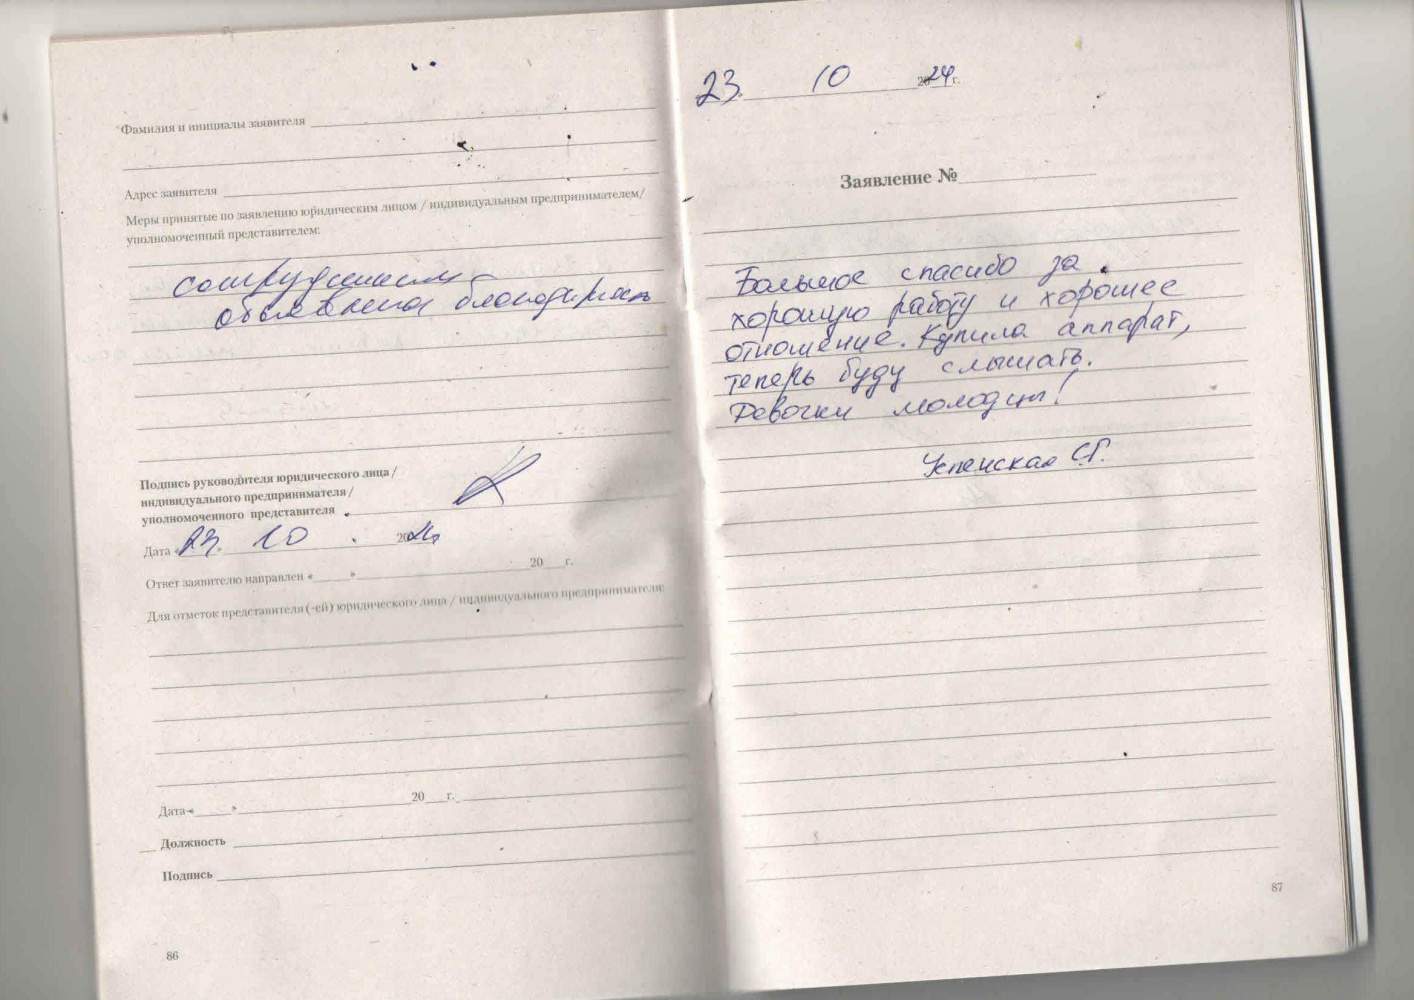 Фамилия и инициалы заявителя
Адрес заявителя
Меры принятые по заявлению юридическим лицом / индивидуальным предпринимателем/
уполномоченный представителем:
сотрудникам
объявлена благодарность
Подпись руководителя юридического лица/
индивидуального предпринимателя/
уполномоченного представителя
Дата «23» 10 2024
Ответ заявителю направлен « » 20 г.
Для отметок представителя (-ей) юридического лица / индивидуального предпринимателя:
Дата « » 20 г.
Должность
Подпись
86
23» 10 2024 г.
Заявление №
Большое спасибо за
хорошую работу и хорошее
отношение. Купила аппарат,
теперь буду слышать.
Девочки молодцы!
Успенская С.Г.
87